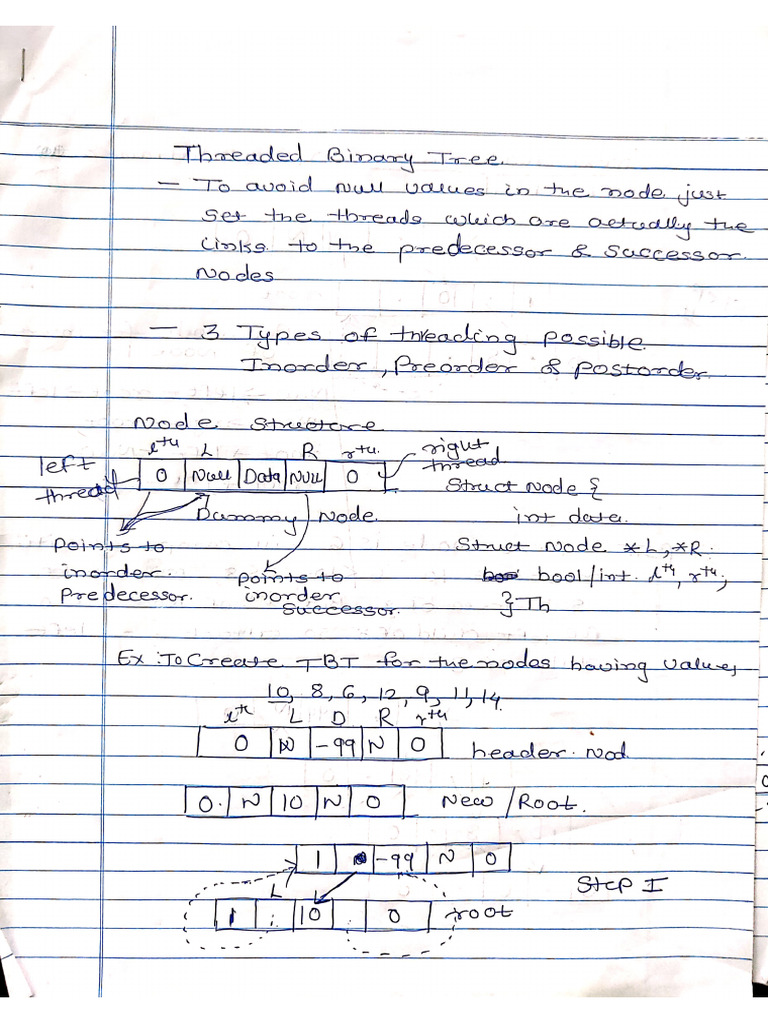 Threaded Binary Tree.
- To avoid Null values in the node just
set the threads which are actually the
links to the predecessor & successor
Nodes
- 3 Types of threading possible
Inorder, Preorder & postorder
Node Structure
lth L R rth
left thread
0 Null Data NULL 0
right thread
Dummy Node
Struct Node {
int data
Struct Node *L, *R.
bool/int lth, rth;
} Th
points to
inorder
Predecessor.
points to
inorder
Successor.
Ex: To Create TBT for the nodes having values
10, 8, 6, 12, 9, 11, 14.
lth L D R rth
0 N -99 N 0 header Nod
0. N 10 N 0 New/Root.
1 -99 N 0
Step I
L
1 10 0 root